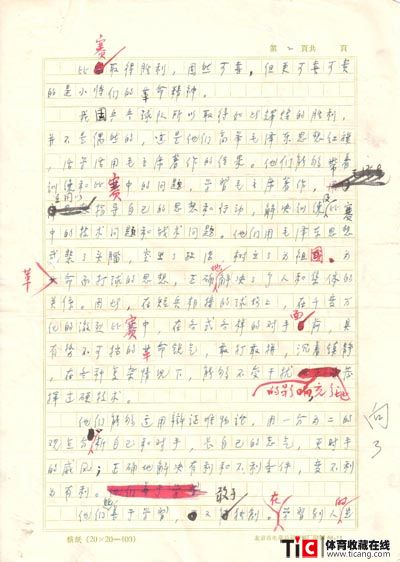 第 2 頁共 頁
赛
比取得胜利，固然可喜，但更可喜可贵
的是小将们的革命精神。
我国乒乓球队所以取得如此辉煌的胜利，
并不是偶然的，这是他们高举毛泽东思想红旗，
活学活用毛主席著作的结果。他们能够带着
训练和比赛中的问题，学习毛主席著作，
指导自己的思想和行动，解决训练和比赛
中的技术问题和战术问题。他们用毛泽东思想
武装了头脑，突出了政治，树立了为祖国、为
革命而打球的思想，正确地解决了个人和集体的
关系。因此，在短兵相接的球场上，在千变万
化的激烈比赛中，在各式各样的对手面前，具
有势不可挡的革命锐气，敢打敢拼，沉着镇静，
在各种复杂情况下，能够不受干扰
的影响，充分地
挥主动技术。
他们能够运用辩证唯物论，用一分为二的
观点分析自己和对手，长自己的志气，灭对手
的威风；正确地解决有利和不利条件，变不利
为有利。
敢于
他们善于学习，又
在学习别人的
向
了
稿纸（20×20=400）
TiC 体育收藏在线
www.ticang.com